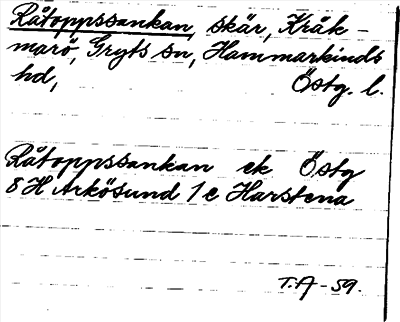 Råtoppssankan, skär, Kråk-
marö, Gryts sn, Hammarkinds
hd, Östg. l.
Råtoppssankan ek Östg
8 H Arkösund 1 c Harstena
T.A-59.